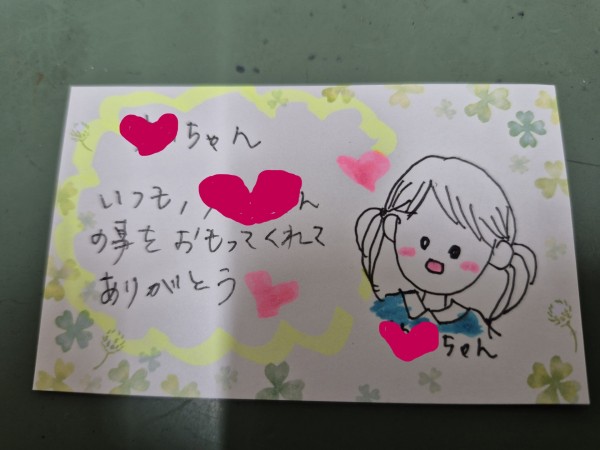 ちゃん
いつも、ん
の事をおもってくれて
ありがとう
ちゃん